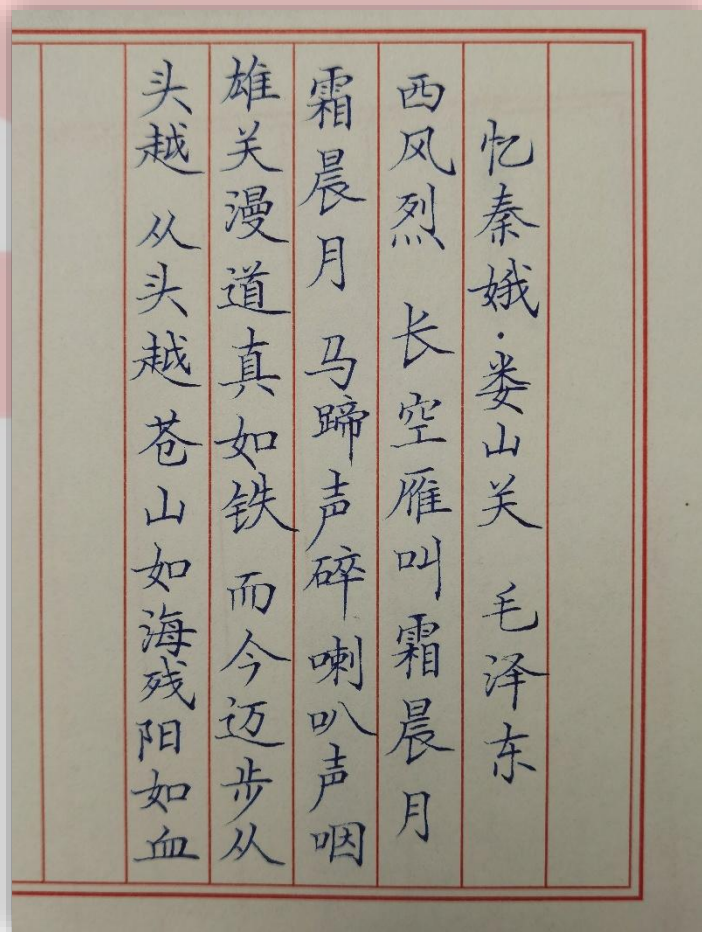 忆秦娥·娄山关 毛泽东
西风烈 长空雁叫霜晨月
霜晨月 马蹄声碎喇叭声咽
雄关漫道真如铁 而今迈步从
头越 从头越苍山如海残阳如血